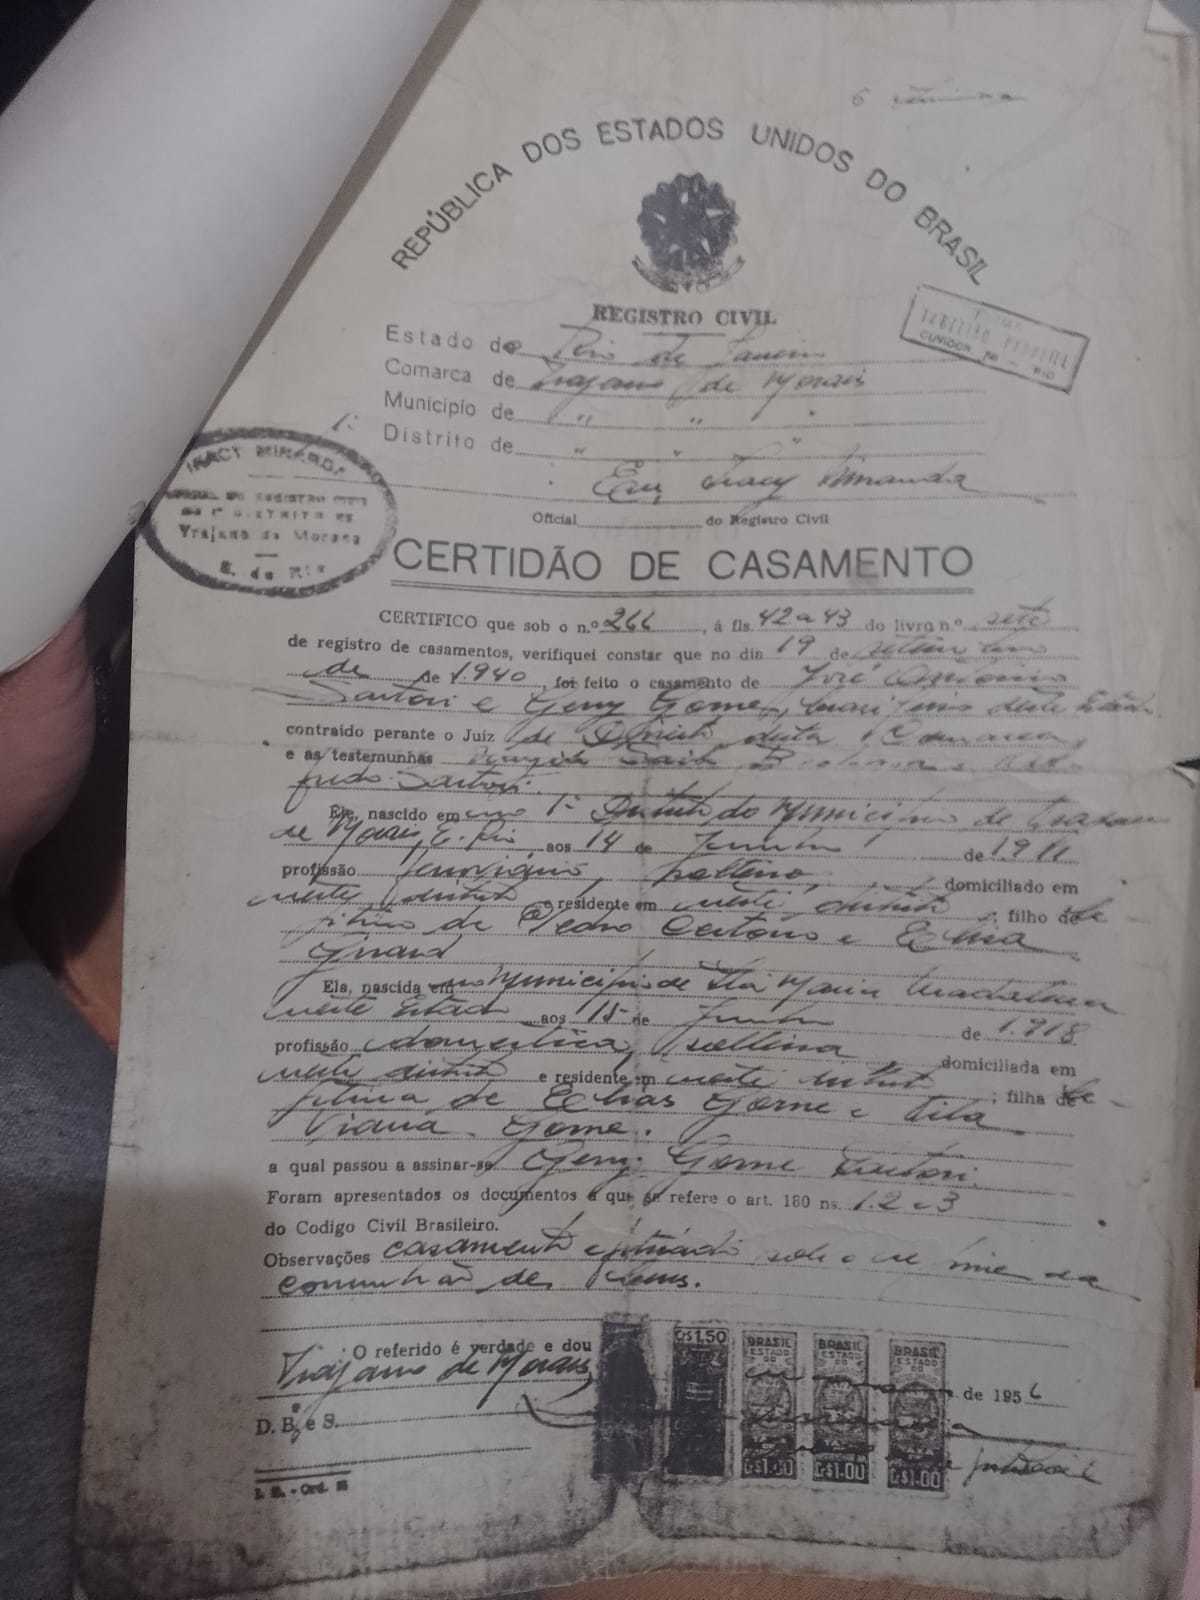 REPÚBLICA DOS ESTADOS UNIDOS DO BRASIL
REGISTRO CIVIL
Estado do Rio de Janeiro
Comarca de Trajano de Morais
Município de " " "
1º Distrito de " " "
Eu, Iracy Miranda
Oficial do Registro Civil
IRACY MIRANDA
Trajano de Moraes
E. do Rio
OUVIDOR - RIO
CERTIDÃO DE CASAMENTO
CERTIFICO que sob o n.º 266, á fls. 42 a 43 do livro n.º sete
de registro de casamentos, verifiquei constar que no dia 19 de setembro
de de 1.940, foi feito o casamento de José Antonio
Sartori e Geny Gome, deste Estado
contraido perante o Juiz de Direito desta Comarca,
e as testemunhas
Sartori.
Ele, nascido em no 1º Distrito do Municipio de Trajano
de Morais, E. Rio, aos 14 de Junho de 1.911
profissão ferroviário, solteiro, domiciliado em
neste distrito e residente em neste distrito; filho de le-
gitimo de Pedro e Elisa
Ela, nascida em no Municipio de Sta Maria Madalena
neste Estado aos 15 de Junho de 1.918
profissão domestica, solteira, domiciliada em
neste distrito e residente em neste distrito; filha de le-
gitima de Elias Gome e
Viana Gome.
a qual passou a assinar-se Geny Gome Sartori.
Foram apresentados os documentos a que se refere o art. 180 ns. 1.2 e 3
do Codigo Civil Brasileiro.
Observações casamento efetuado sob o regime da
comunhão de bens.
O referido é verdade e dou
Trajano de Morais, de 1956
D. B. e S.
Cr$1,50
BRASIL ESTADO DO
BRASIL ESTADO DO
BRASIL ESTADO DO
Cr$1.00
Cr$1.00
Cr$1.00